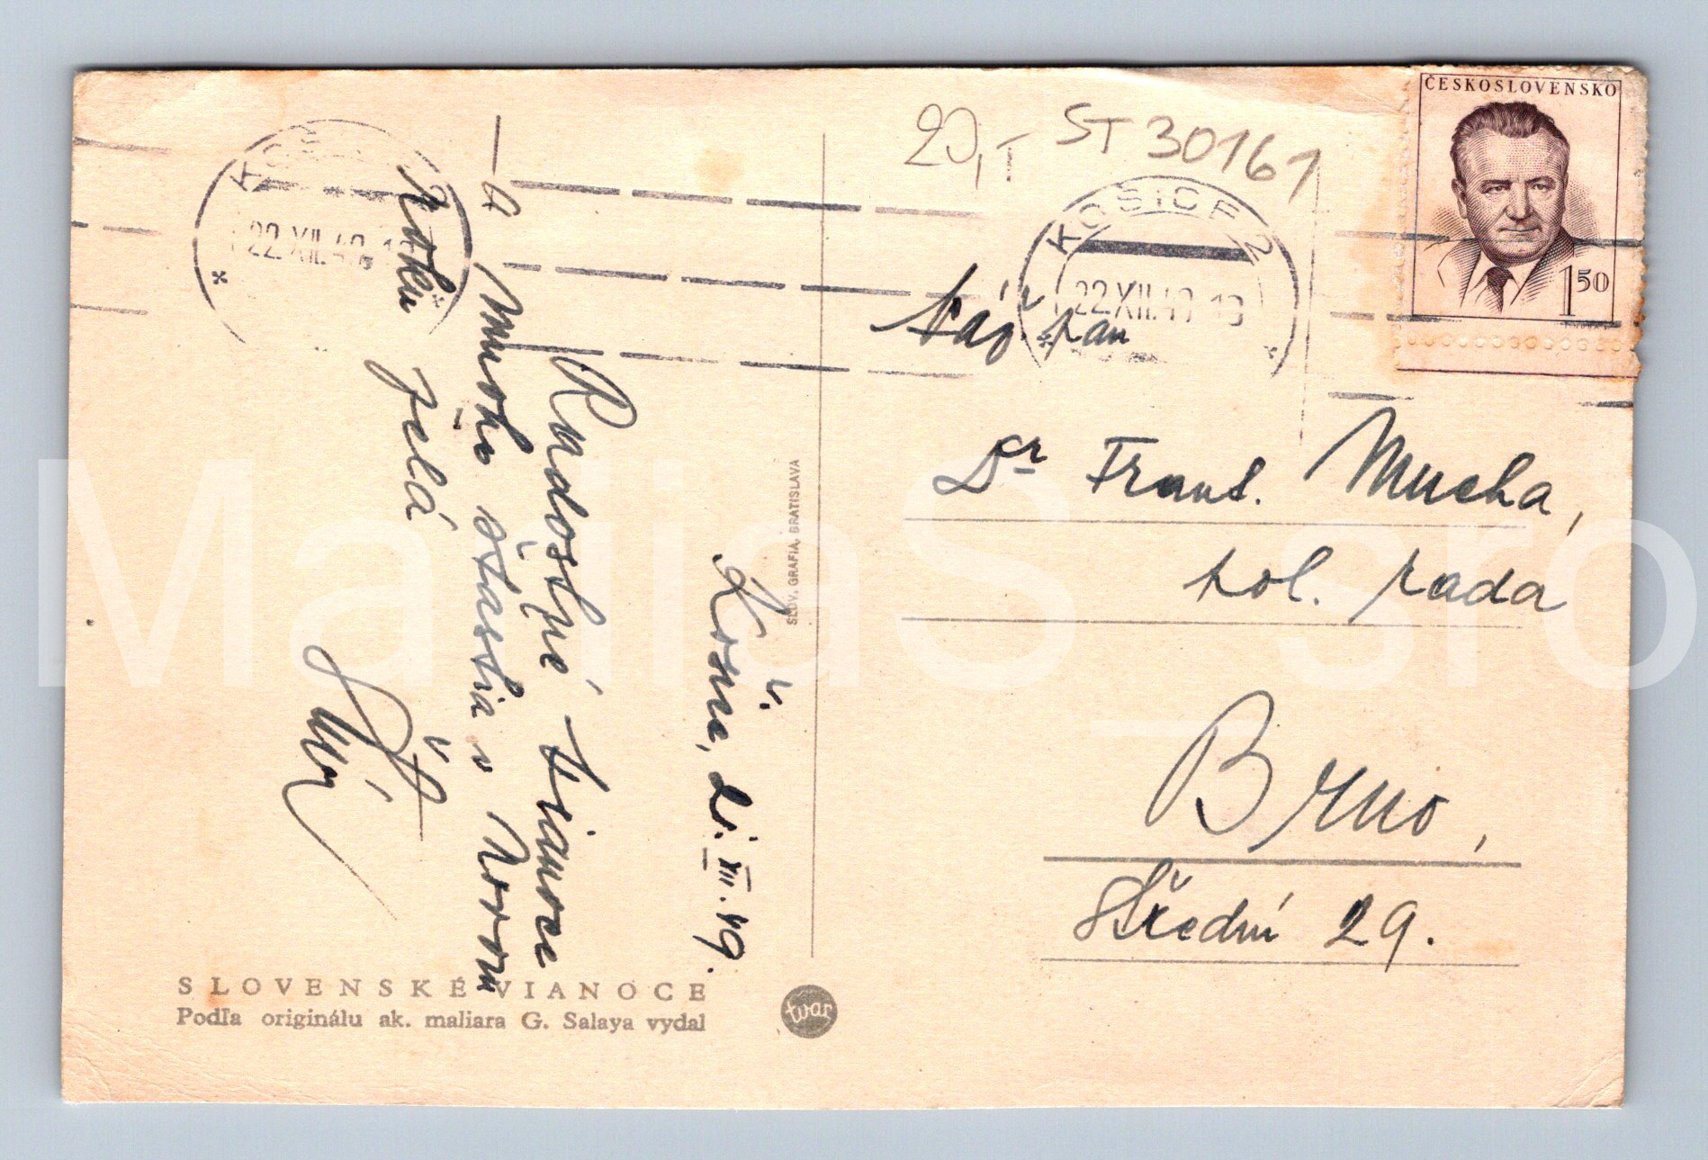 ČESKOSLOVENSKO
1 50
20,- ST 30161
KOŠICE 2
22.XII.49.18
KOŠ
22.XII.49.18
Váž. pan
Dr Frant. Mucha,
pol. rada
Brno,
Střední 29.
Košice, 21.XII.49.
Radostné Vianoce
a mnoho šťastia v Novom
Roku želá
SLOV. GRAFIA, BRATISLAVA
SLOVENSKÉ VIANOCE
Podľa originálu ak. maliara G. Salaya vydal
tvar
MaliaS_sro